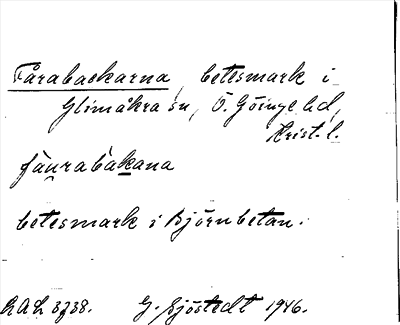 Fårabackarna, betesmark i
Glimåkra sn, Ö. Göinge hd,
Krist. l.
fåurabakana
betesmark i Björnbetan.
LAL 3738. G. Sjöstedt 1946.